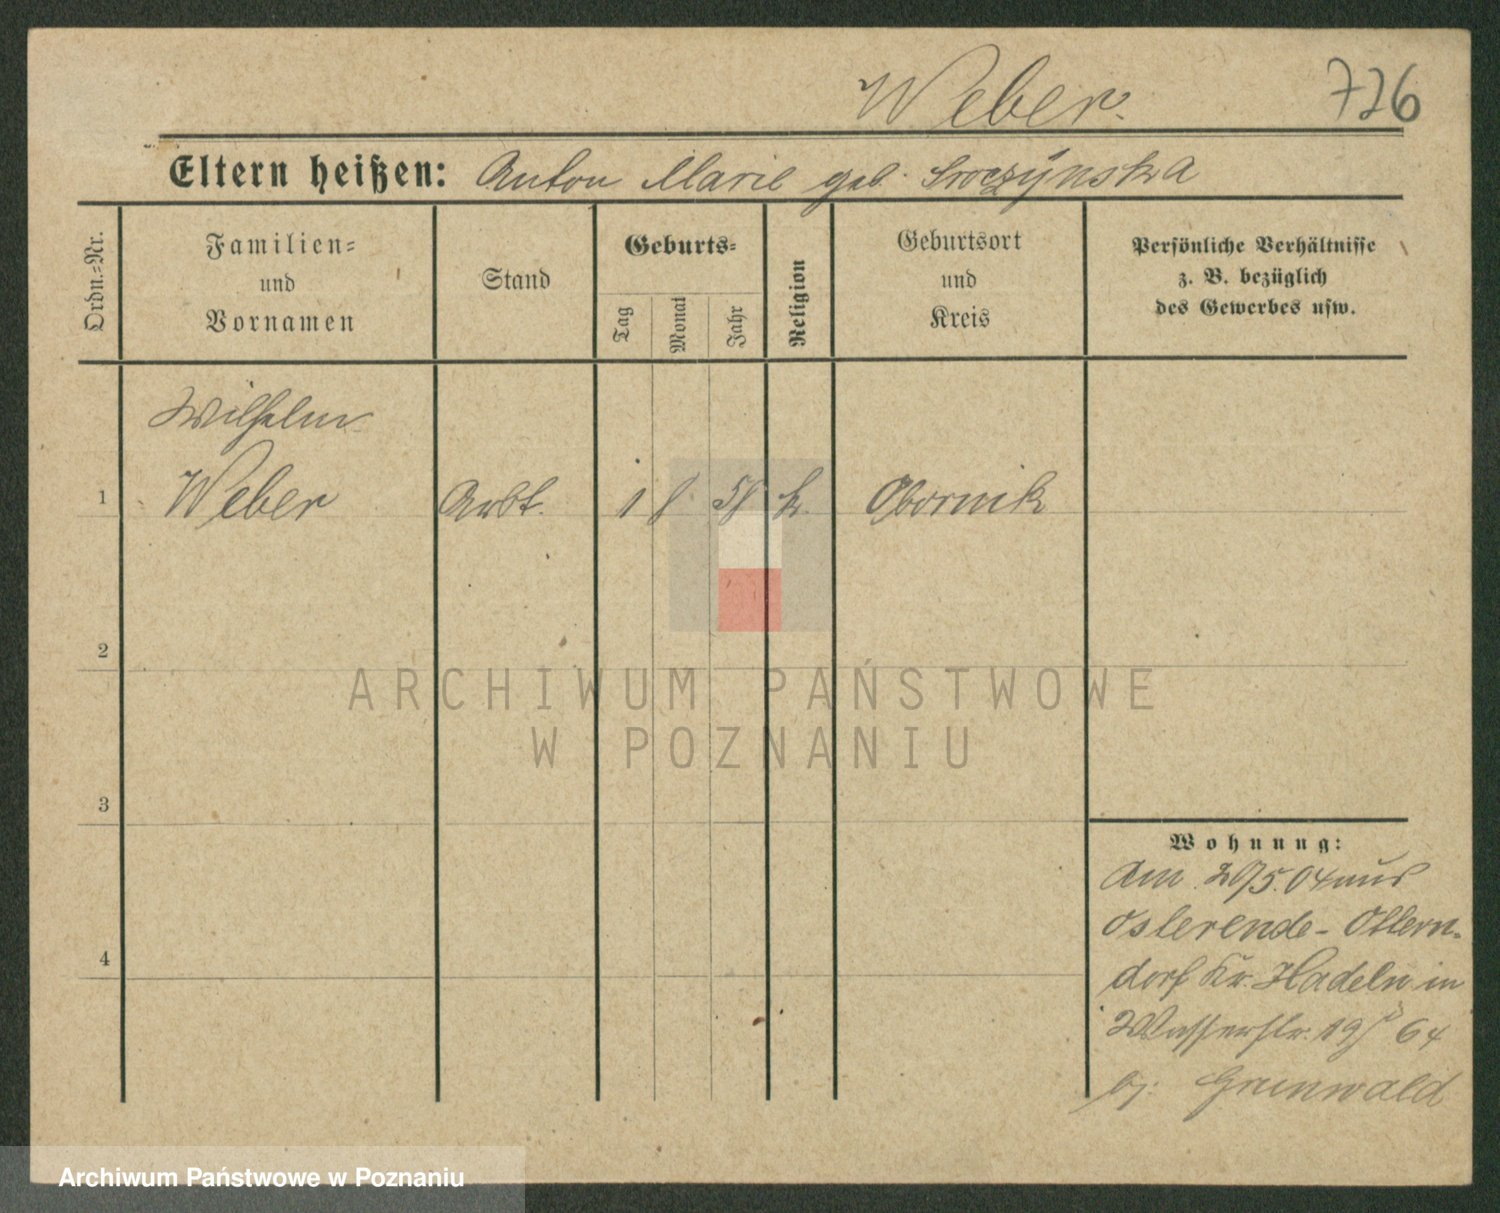 Weber.
726
Eltern heißen: Anton Marie geb. Sroczynska
Ordn.-Nr.
Familien-
und
Vornamen
Stand
Geburts-
Tag
Monat
Jahr
Religion
Geburtsort
und
Kreis
Persönliche Verhältnisse
z. B. bezüglich
des Gewerbes usw.
Wilhelm
1 Weber Arbt. 1 8 58 k. Obornik
2
3
4
Wohnung:
Am 20/5.04 aus
Osterende-Ottern-
dorf Kr. Hadeln in
Wasserstr. 19 64
bj: Grunwald
ARCHIWUM PAŃSTWOWE
W POZNANIU
Archiwum Państwowe w Poznaniu